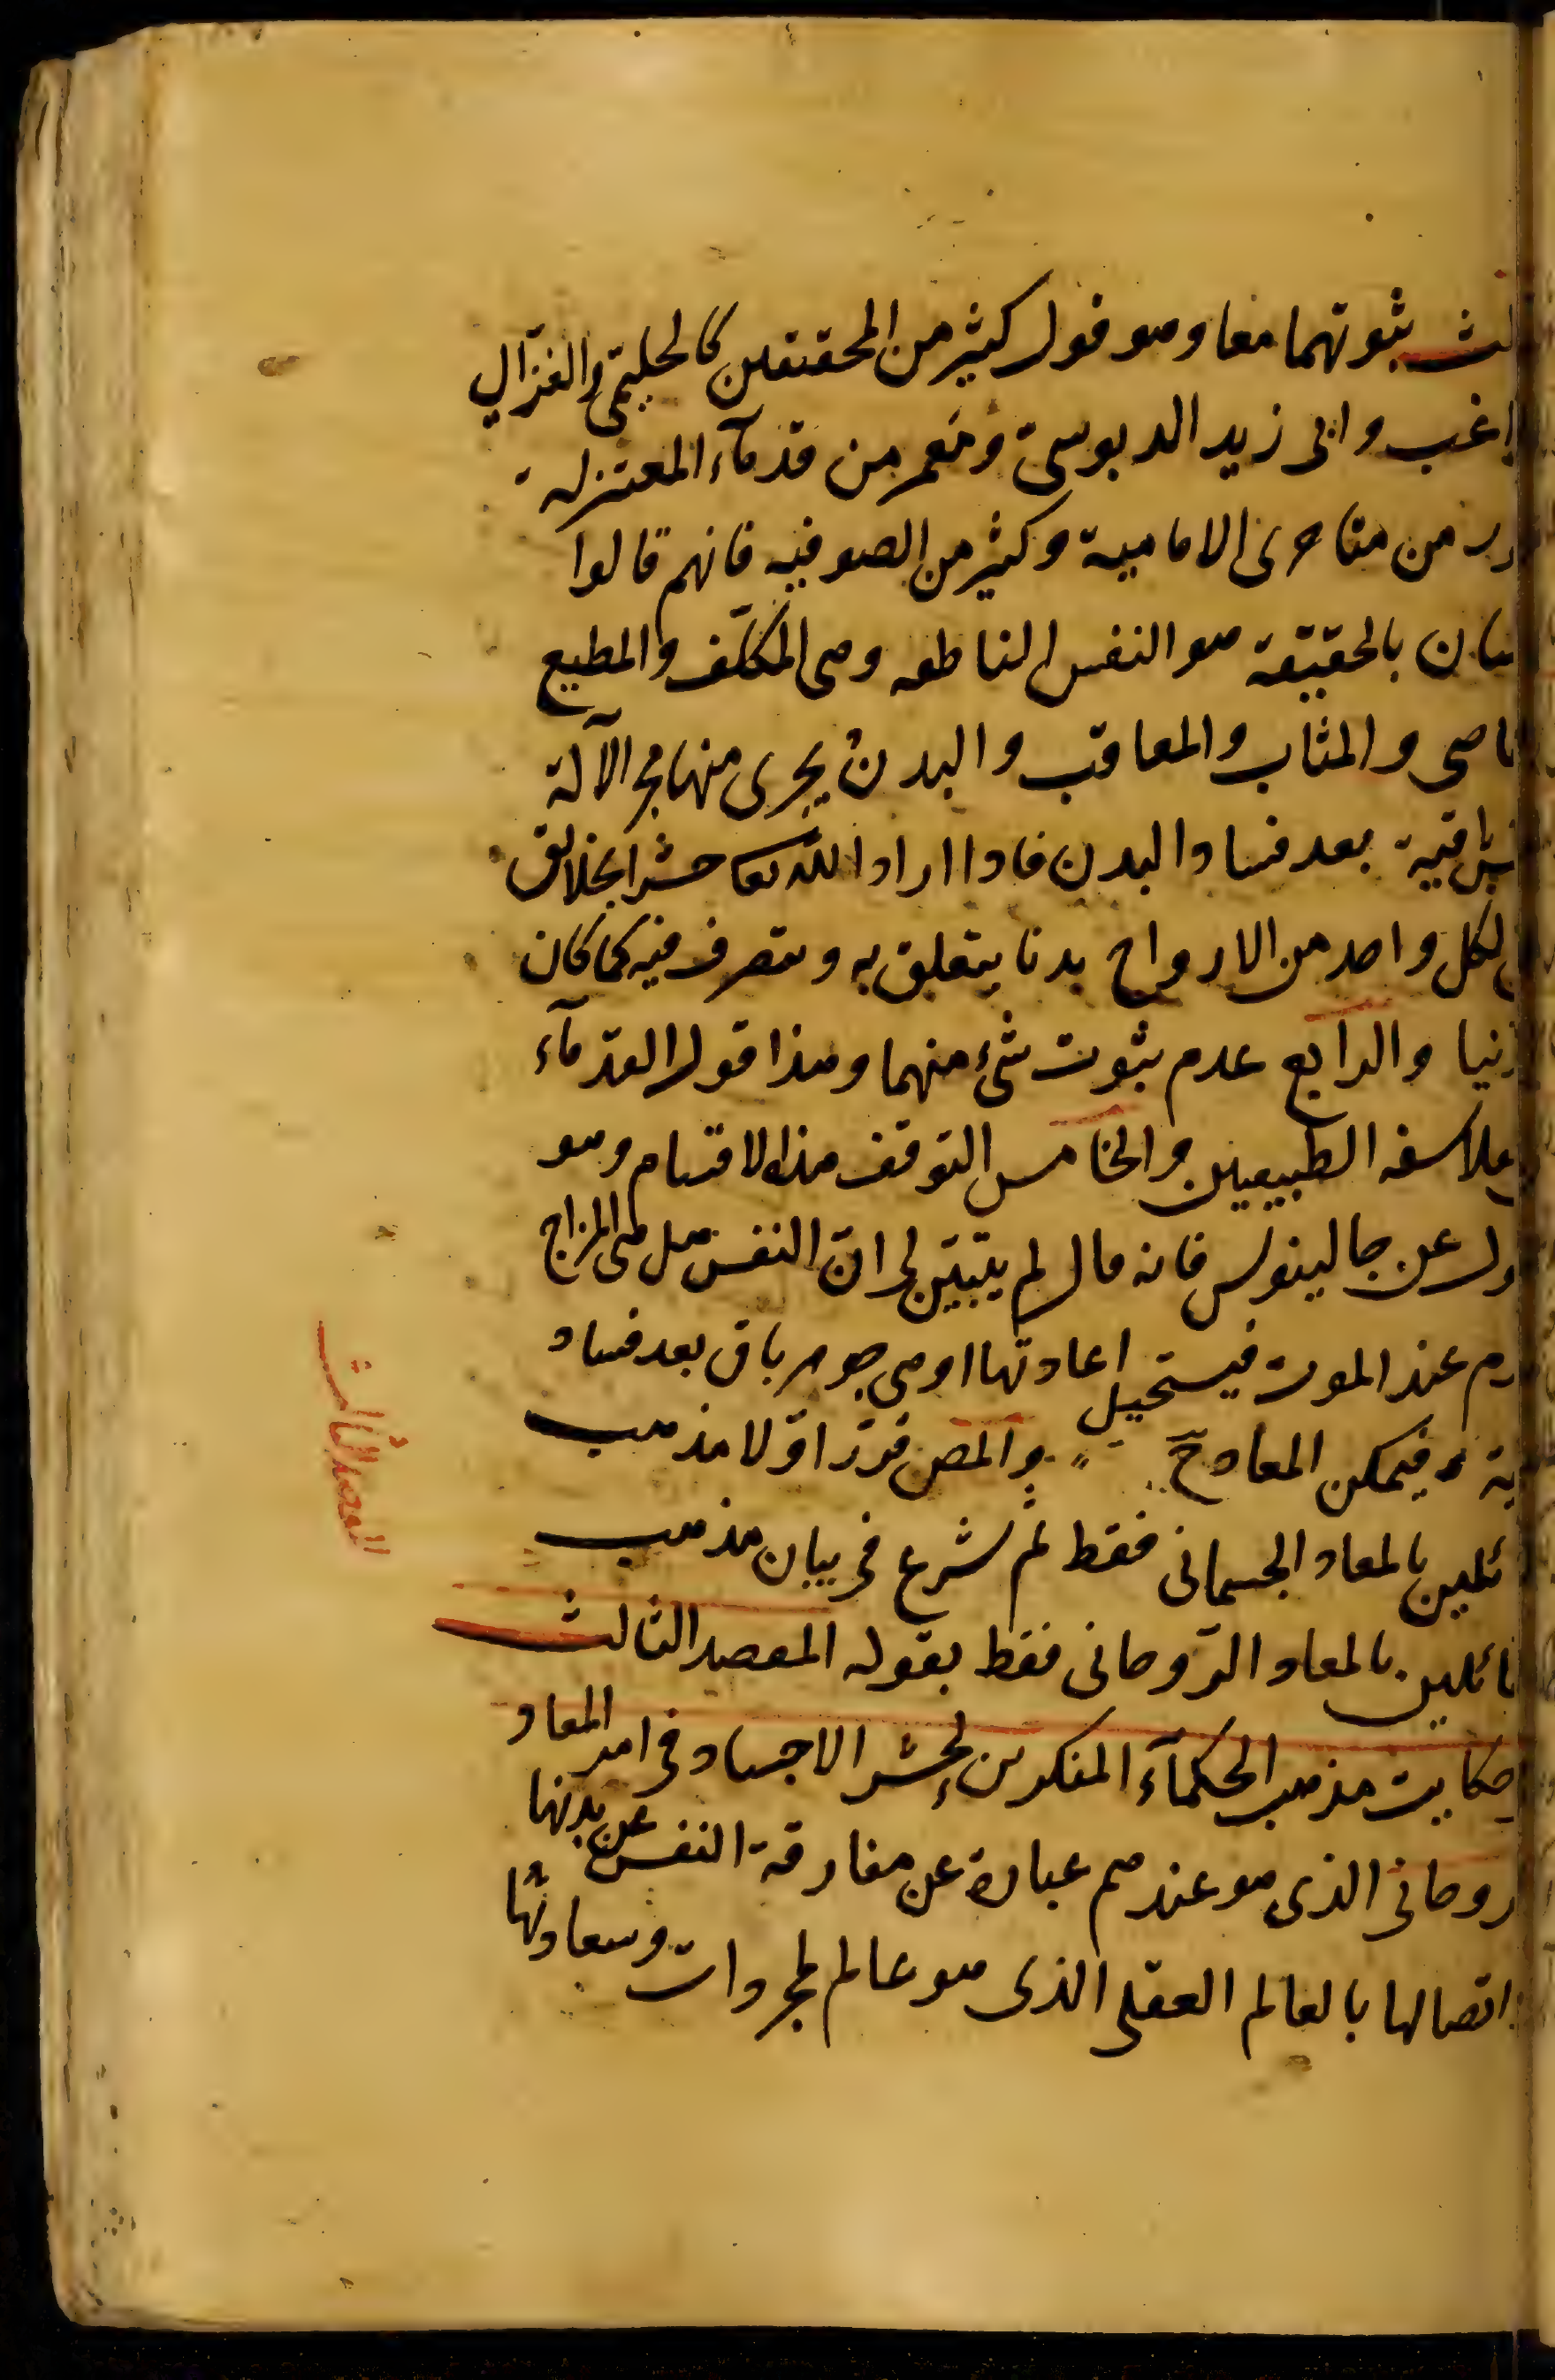 لث ثبوتهما معا وهو قول كثير من المحققين كالحليمى والغزالى
اغب وابى زيد الدبوسى ومعمر من قدمآء المعتزلة
ور من متاخرى الامامية وكثير من الصوفيه فانهم قالوا
سان بالحقيقة هو النفس الناطقه وهى المكلّف والمطيع
اصى والمثاب والمعاقب والبدن يجرى منها مجر الآلة
باقية بعد فساد البدن فاذا اراد الله تعا حشر الخلائق
لكل واحد من الارواح بدنا يتعلق به ويتصرف فيه كما كان
نيا والرابع عدم ثبوت شئ منهما وهذا قول القدمآء
فلاسفه الطبيعيين والخامس التوقف هذه الاقسام وهو
ول عن جالينوس فانه قال لم يتبيّن لى انّ النفس هل هى المزاج
دم عند الموت فيستحيل اعادتها او هى جوهر باق بعد فساد
ية فيمكن المعاد ح والمص قرّر اوّلا مذهب
ئلين بالمعاد الجسمانى فقط ثم شرع فى بيان مذهب
ائلين بالمعاد الرّوحانى فقط بقوله المقصد الثالث
حكايت مذهب الحكمآء المنكرين لحشر الاجساد فى امر المعاد
روحانى الذى هو عندهم عبارة عن مفارقة النفس عن بدنها
اتصالها بالعالم العقلى الذى هو عالم المجردات وسعادتها
المقصد الثالث